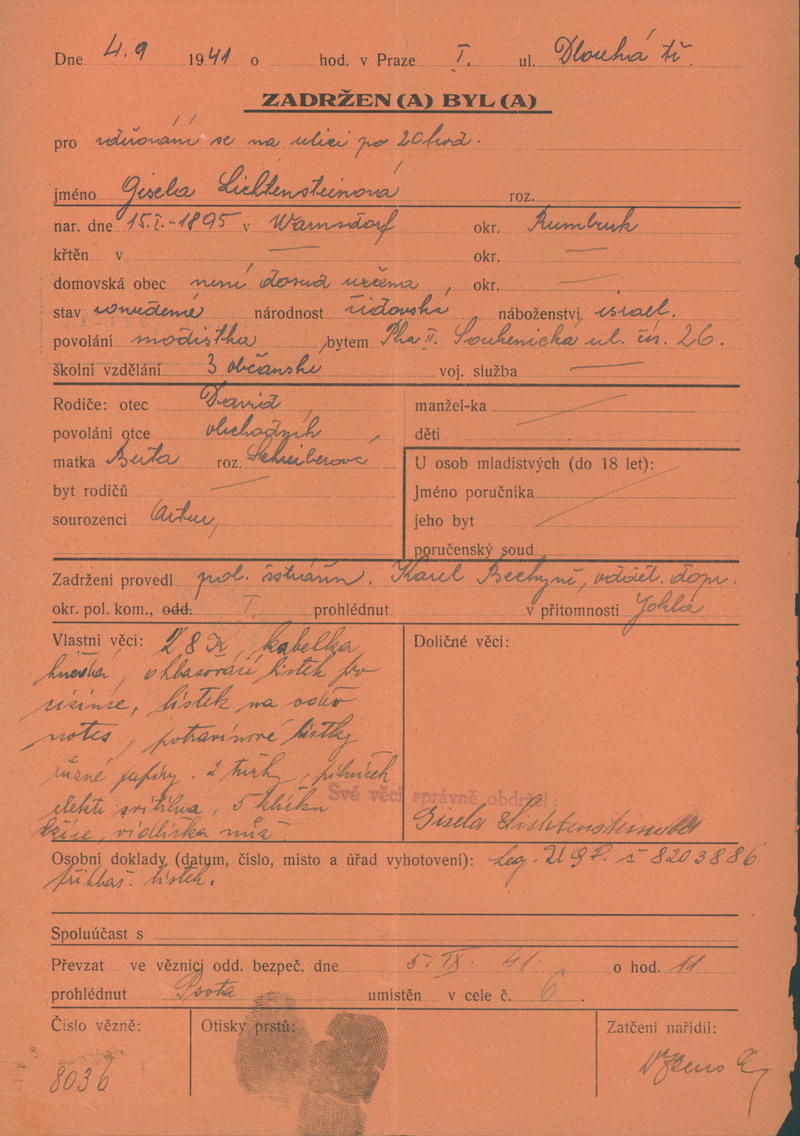 Dne 4.9 1941 o hod. v Praze I. ul. Dlouhá tř.
ZADRŽEN(A) BYL(A)
pro zdržování se na ulici po 20 hod.
jméno Gisela Lichtensteinová roz.
nar. dne 15.I.-1895 v Warnsdorf okr. Rumburk
křtěn v — okr. —
domovská obec není dosud určena, okr. —
stav rozvedená národnost židovská náboženství israel.
povolání modistka bytem Pha II. Soukenická ul. čís. 26.
školní vzdělání 3 občanské voj. služba —
Rodiče: otec David
povolání otce obchodník
matka Berta roz. Schreiberová
byt rodičů —
sourozenci Artur,
manžel-ka
děti
U osob mladistvých (do 18 let):
Jméno poručníka
jeho byt
poručenský soud
Zadržení provedl pol. Karel Bechyně, dopr.
okr. pol. kom., odd. I prohlédnut v přítomnosti Jokla
Vlastní věci: 28 K, kabelka
hnědá, ohlašovací lístek po
lístek na
notes, potravinové lístky
různé papíry. 2 tužky, pilníček
elektr. svítilna, 5 klíčků
lžíce, vidlička nůž.
Doličné věci:
Své věci správně obdržel:
Gisela Lichtensteinová
Osobní doklady (datum, číslo, místo a úřad vyhotovení): leg. č 8203886
přihlaš. lístek.
Spoluúčast s
Převzat ve věznici odd. bezpeč. dne 5. IX. 41. o hod. 11
prohlédnut umístěn v cele č. 6.
Číslo vězně: Otisky prstů: Zatčení nařídil:
8036